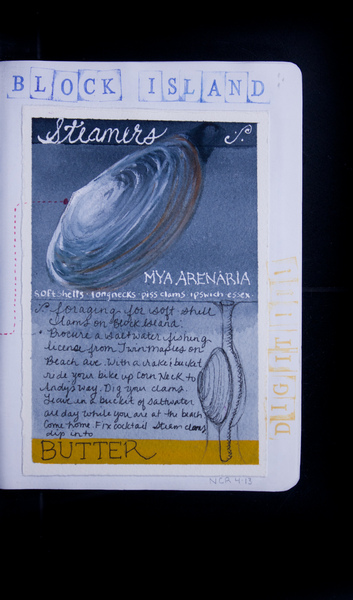 BLOCK ISLAND
Steamers
MYA ARENÀRIA
soft shells · longnecks · piss clams · ipswich · essex
foraging for soft shell
clams on Block Island.
• Procure a saltwater fishing
license from Twin Maples on
Beach ave. With a rake & bucket
ride your bike up Corn Neck to
Andy's way. Dig your clams.
Leave in a bucket of saltwater
all day while you are at the beach
Come home. Fix cocktail Steam clams
dip into
BUTTER
DIG IT!!!
NCR 4·13